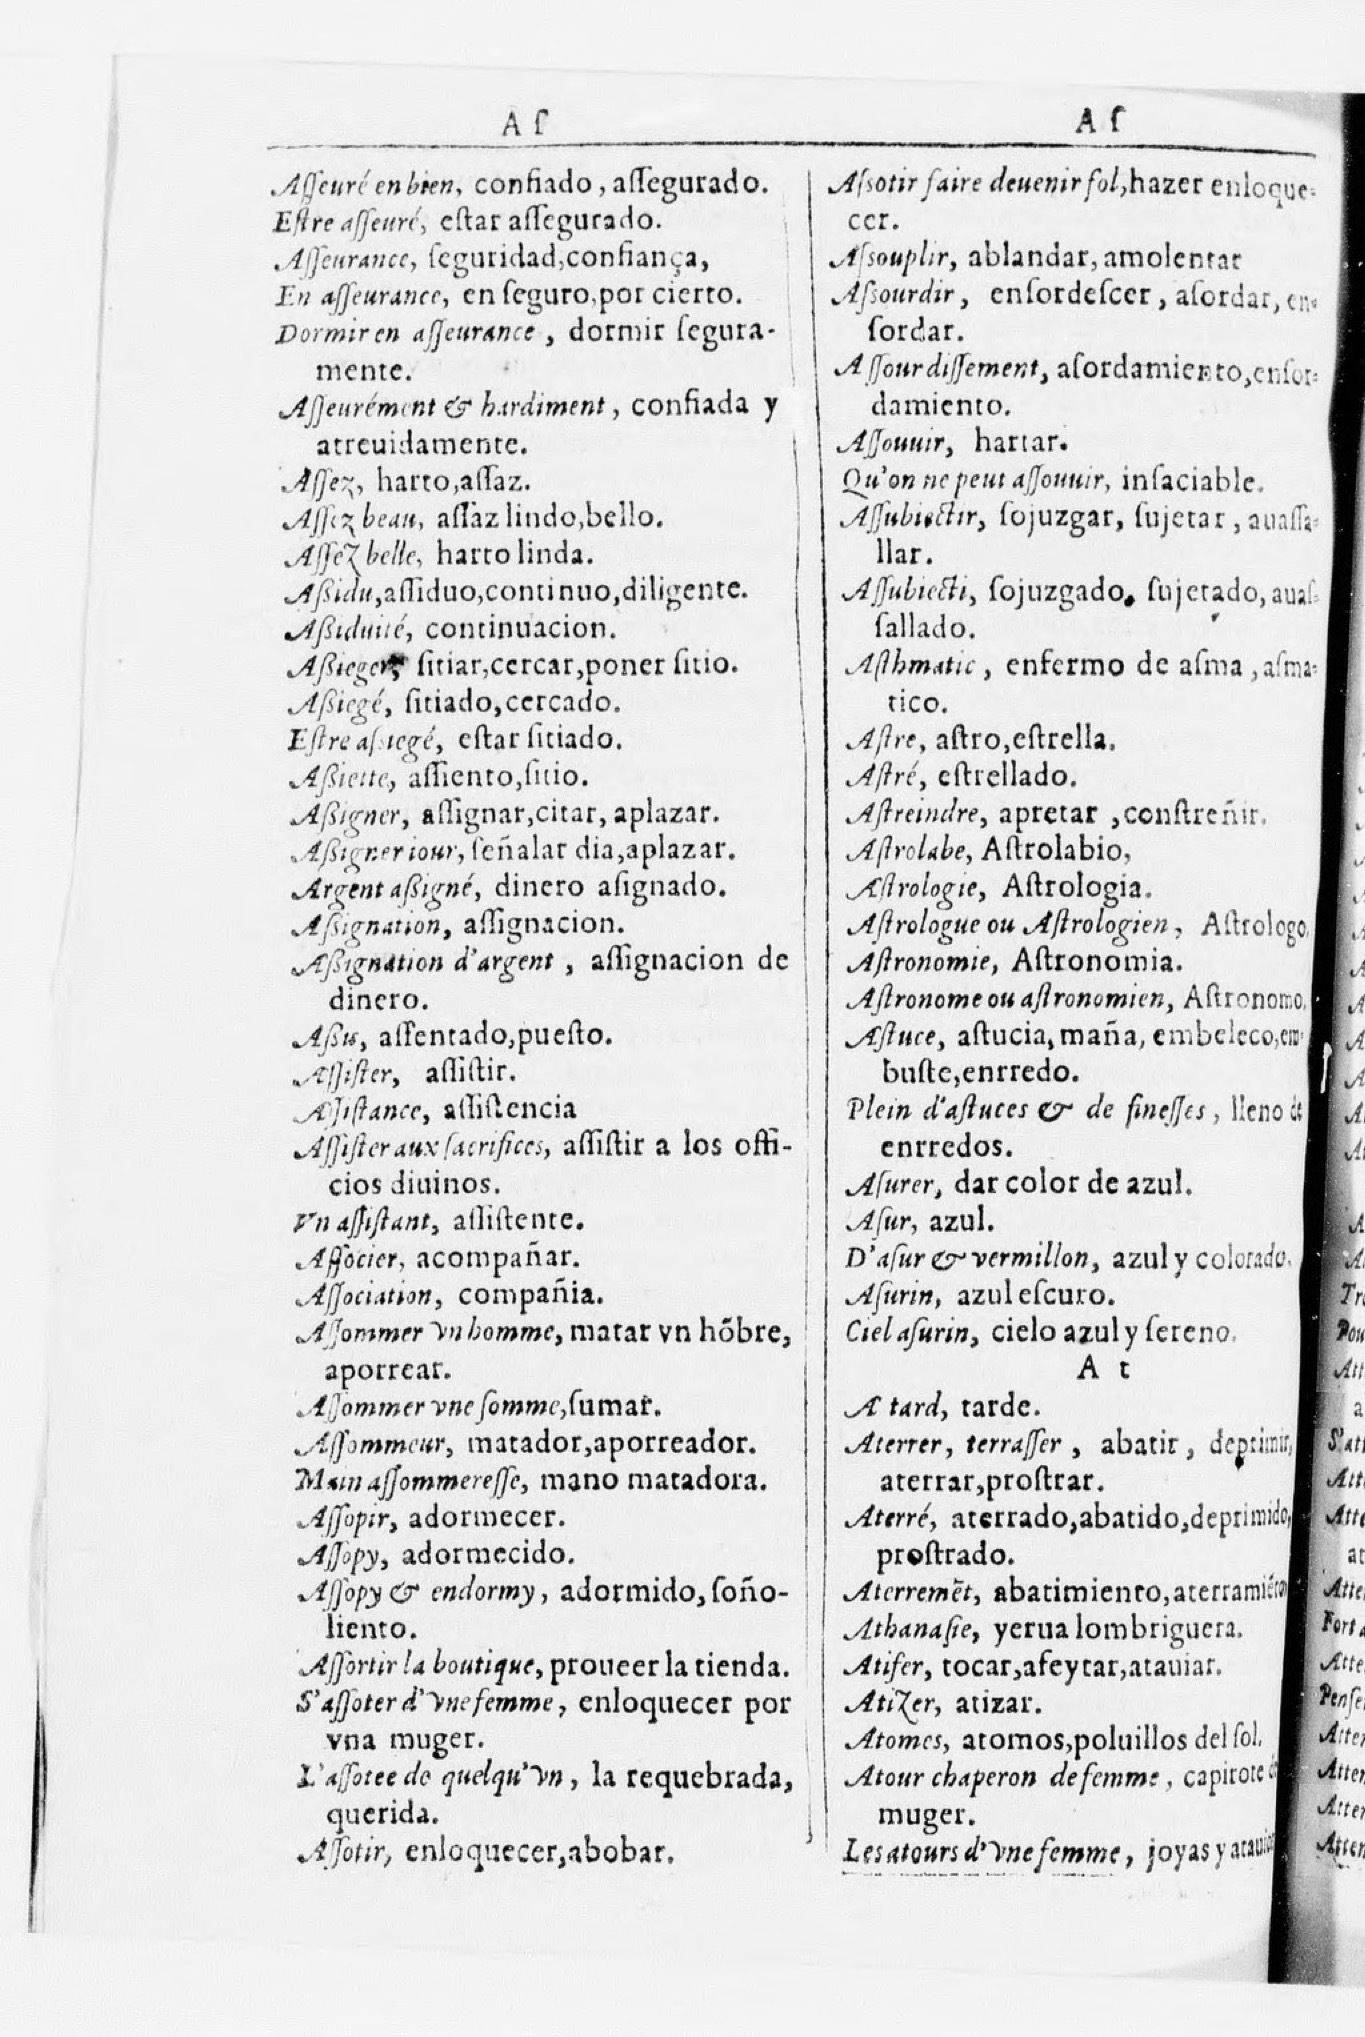 A ſ
Aſſeuré en bien, confiado, aſſegurado.
Eſtre aſſeuré, eſtar aſſegurado.
Aſſeurance, ſeguridad,confiança,
En aſſeurance, en ſeguro,por cierto.
Dormir en aſſeurance, dormir ſegura-
mente.
Aſſeurément & hardiment, confiada y
atreuidamente.
Aſſez, harto,aſſaz.
Aſſez beau, aſſaz lindo,bello.
Aſſez belle, harto linda.
Aßidu,aſſiduo,continuo,diligente.
Aßiduité, continuacion.
Aßieger, ſitiar,cercar,poner ſitio.
Aßiegé, ſitiado,cercado.
Eſtre aſsiegé, eſtar ſitiado.
Aßiette, aſſiento,ſitio.
Aßigner, aſſignar,citar, aplazar.
Aßigner iour, ſeñalar dia,aplazar.
Argent aßigné, dinero aſignado.
Aßignation, aſſignacion.
Aßignation d'argent, aſſignacion de
dinero.
Aßis, aſſentado,pueſto.
Aſſiſter, aſſiſtir.
Aſſiſtance, aſſiſtencia
Aſſiſter aux ſacrifices, aſſiſtir a los offi-
cios diuinos.
Vn aſſiſtant, aſſiſtente.
Aſſocier, acompañar.
Aſſociation, compañia.
Aſſommer vn homme, matar vn hõbre,
aporrear.
Aſſommer vne ſomme,ſumar.
Aſſommeur, matador,aporreador.
Main aſſommereſſe, mano matadora.
Aſſopir, adormecer.
Aſſopy, adormecido.
Aſſopy & endormy, adormido, ſoño-
liento.
Aſſortir la boutique, proueer la tienda.
S'aſſoter d'vne femme, enloquecer por
vna muger.
L'aſſotee de quelqu'vn, la requebrada,
querida.
Aſſotir, enloquecer,abobar.
A ſ
Aſsotir faire deuenir fol,hazer enloque-
cer.
Aſsouplir, ablandar, amolentar
Aſsourdir, enſordeſcer, aſordar, en-
ſordar.
Aſſourdiſſement, aſordamiento,enſor-
damiento.
Aſſouuir, hartar.
Qu'on ne peut aſſouuir, inſaciable.
Aſſubiectir, ſojuzgar, ſujetar, auaſſa-
llar.
Aſſubiecti, ſojuzgado, ſujetado, auaſ-
ſallado.
Aſthmatic, enfermo de aſma, aſma-
tico.
Aſtre, aſtro,eſtrella.
Aſtré, eſtrellado.
Aſtreindre, apretar ,conſtreñir.
Aſtrolabe, Aſtrolabio,
Aſtrologie, Aſtrologia.
Aſtrologue ou Aſtrologien, Aſtrologo.
Aſtronomie, Aſtronomia.
Aſtronome ou aſtronomien, Aſtronomo.
Aſtuce, aſtucia, maña, embeleco,em-
buſte,enrredo.
Plein d'aſtuces & de fineſſes, lleno de
enrredos.
Aſurer, dar color de azul.
Aſur, azul.
D'aſur & vermillon, azul y colorado.
Aſurin, azul eſcuro.
Ciel aſurin, cielo azul y ſereno.
A t
A tard, tarde.
Aterrer, terraſſer, abatir, deprimir,
aterrar,proſtrar.
Aterré, aterrado,abatido,deprimido,
proſtrado.
Aterremẽt, abatimiento,aterramiẽto
Athanaſie, yerua lombriguera.
Atifer, tocar,afeytar,atauiar.
Atizer, atizar.
Atomes, atomos,poluillos del ſol.
Atour chaperon de femme, capirote de
muger.
Les atours d'vne femme, joyas y atauios